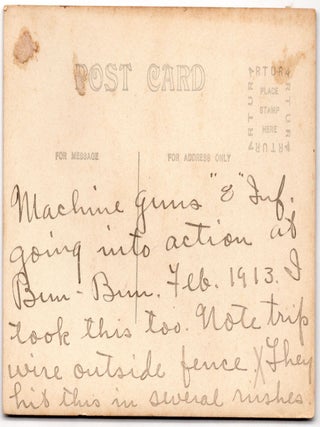 POST CARD
ARTURA
ARTURA
PLACE
STAMP
HERE
ARTURA
ARTURA
FOR MESSAGE
FOR ADDRESS ONLY
Machine guns "8" Inf.
going into action at
Bun-Bun. Feb. 1913. I
took this too. Note trip
wire outside fence X They
hit this in several rushes